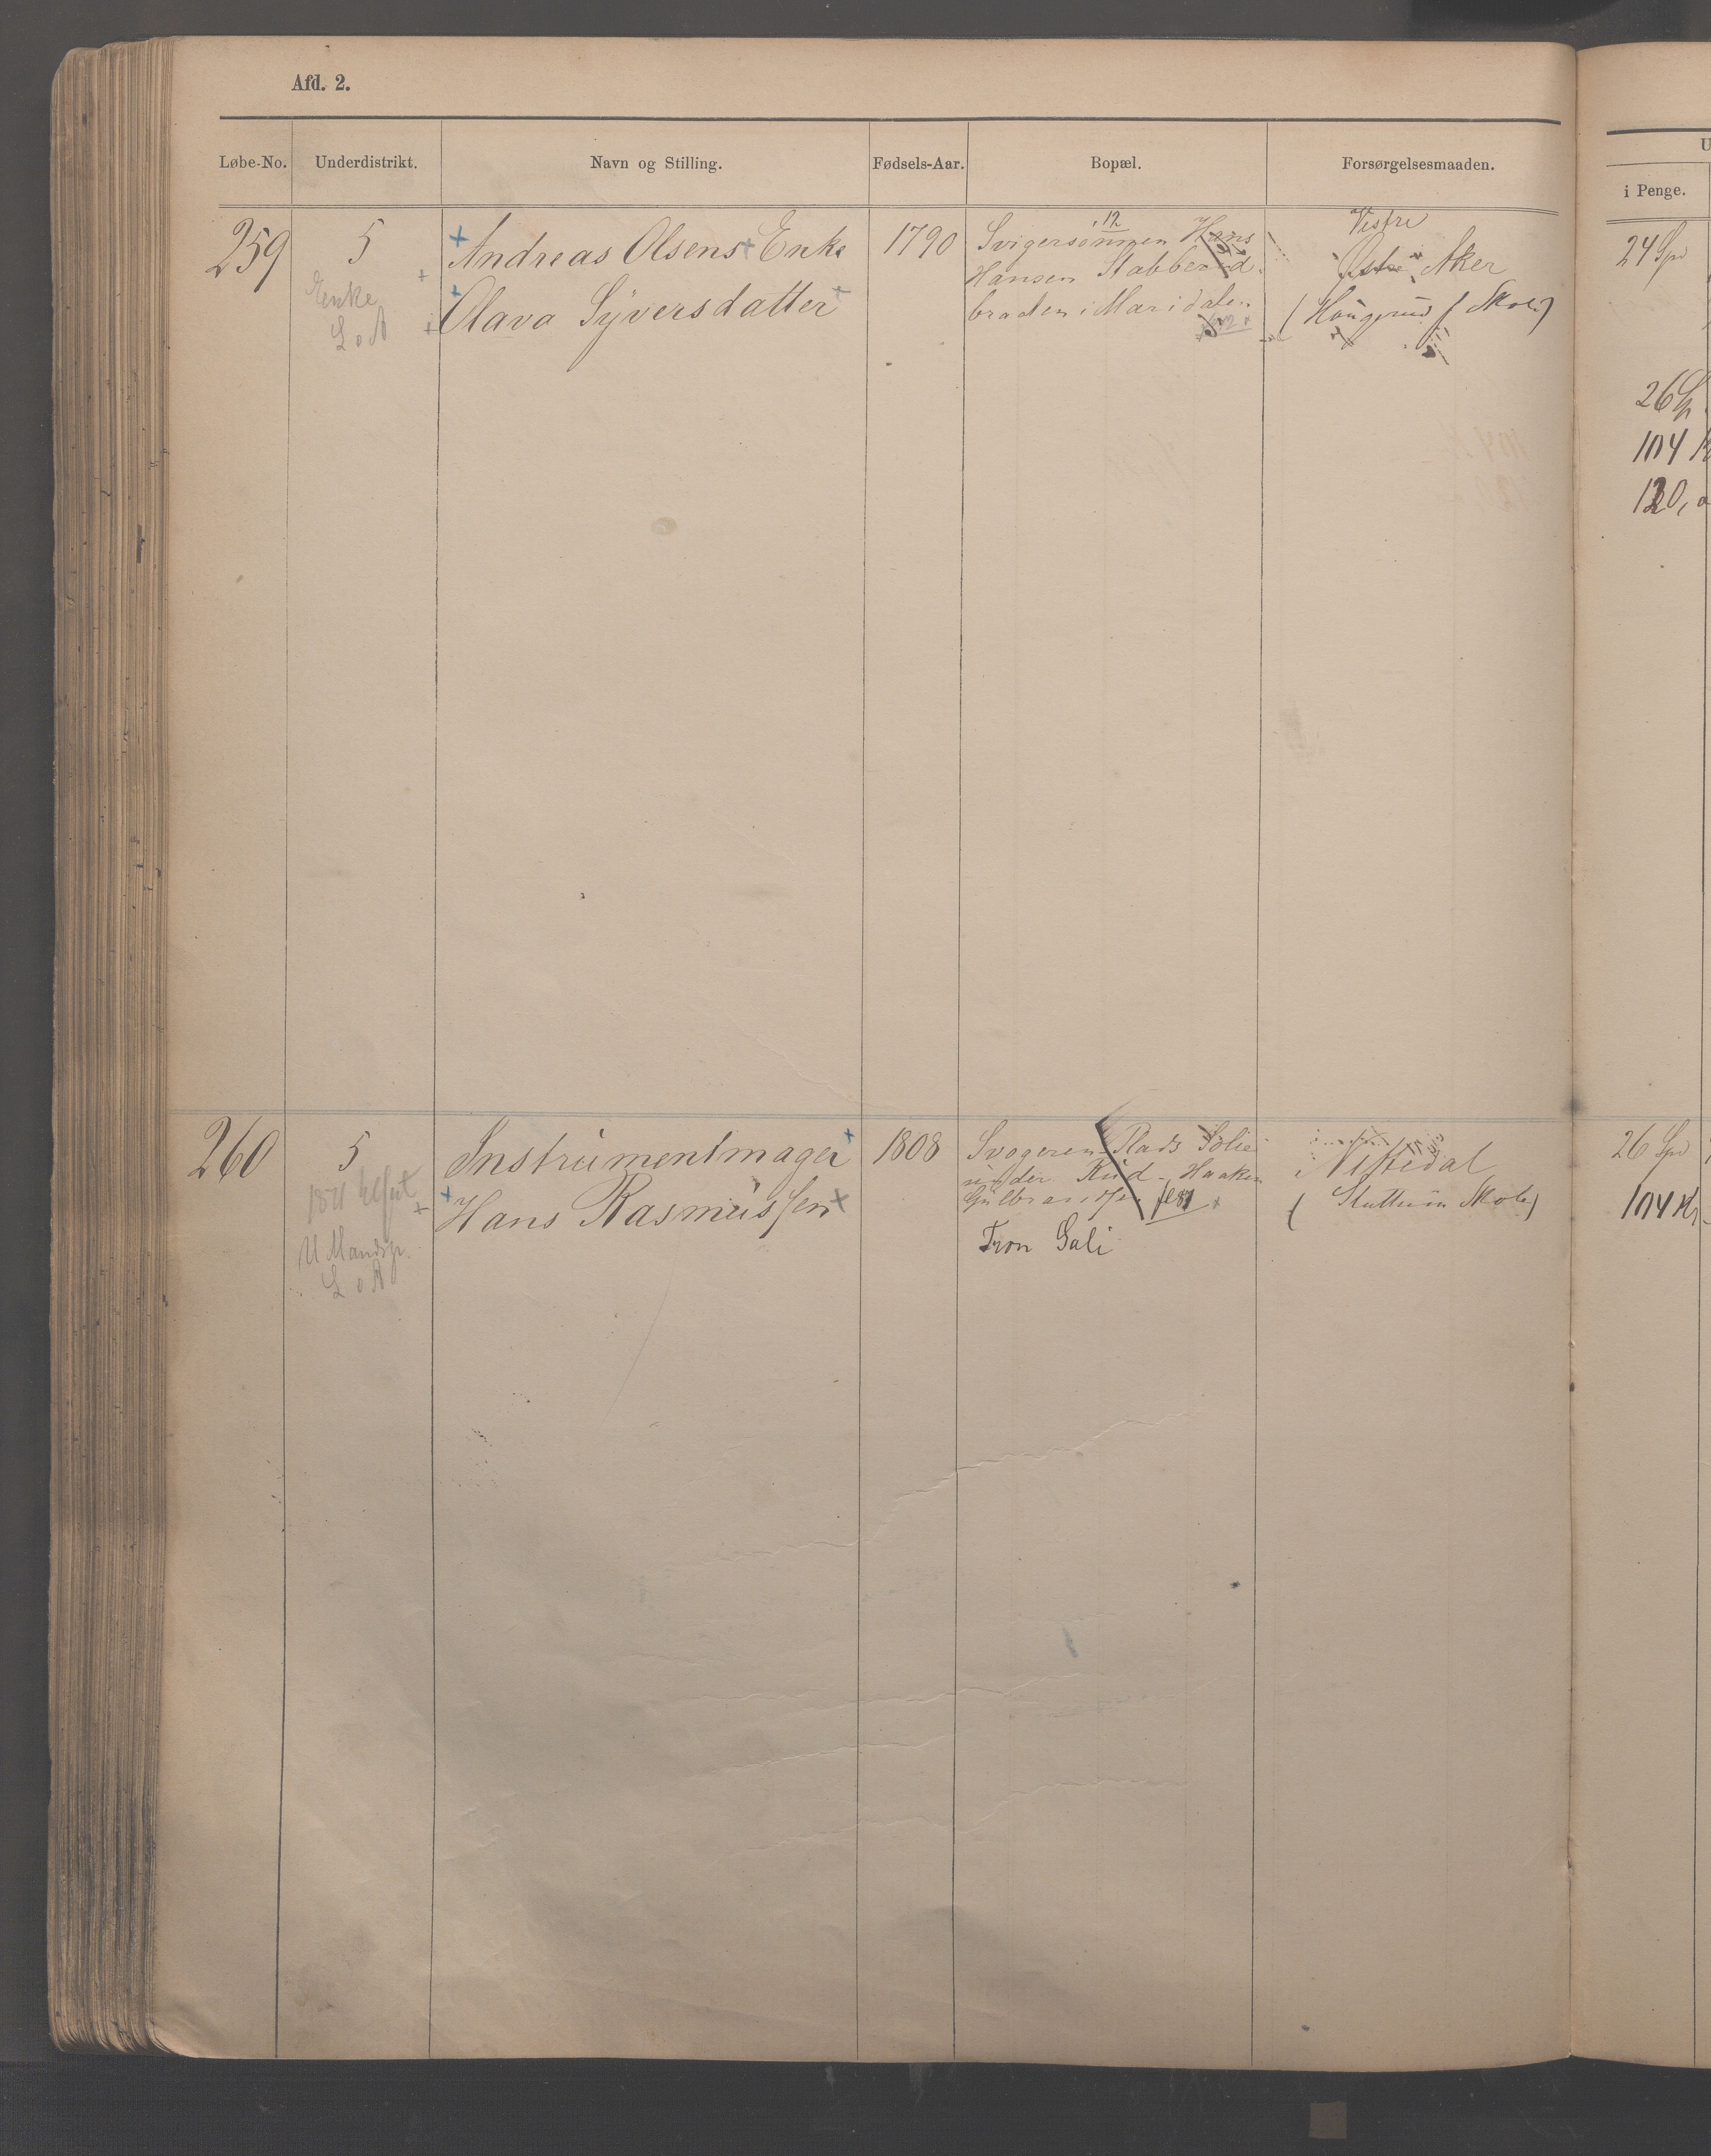 Afd. 2.
Løbe-No. Underdistrikt. Navn og Stilling. Fødsels-Aar. Bopæl. Forsørgelsesmaaden.
i Penge.
259
5
Enke
L o A
Andreas Olsens Enke
Olava Syversdatter
1790
12
Svigersønnen Hans
Hansen Stabberud
braaten i Maridalen
Vestre
Østre Aker
(Skole)
24 Spd
26 Sp
104 K
120,
260
5
U Mandsp.
L o A
Instrumentmager
Hans Rasmussen
1808
Svogeren Plads Solie
under Rud - Haaken
Gulbrandsen
Tron Gali
Nittedal
(Skole)
26 Spd
104 Kr